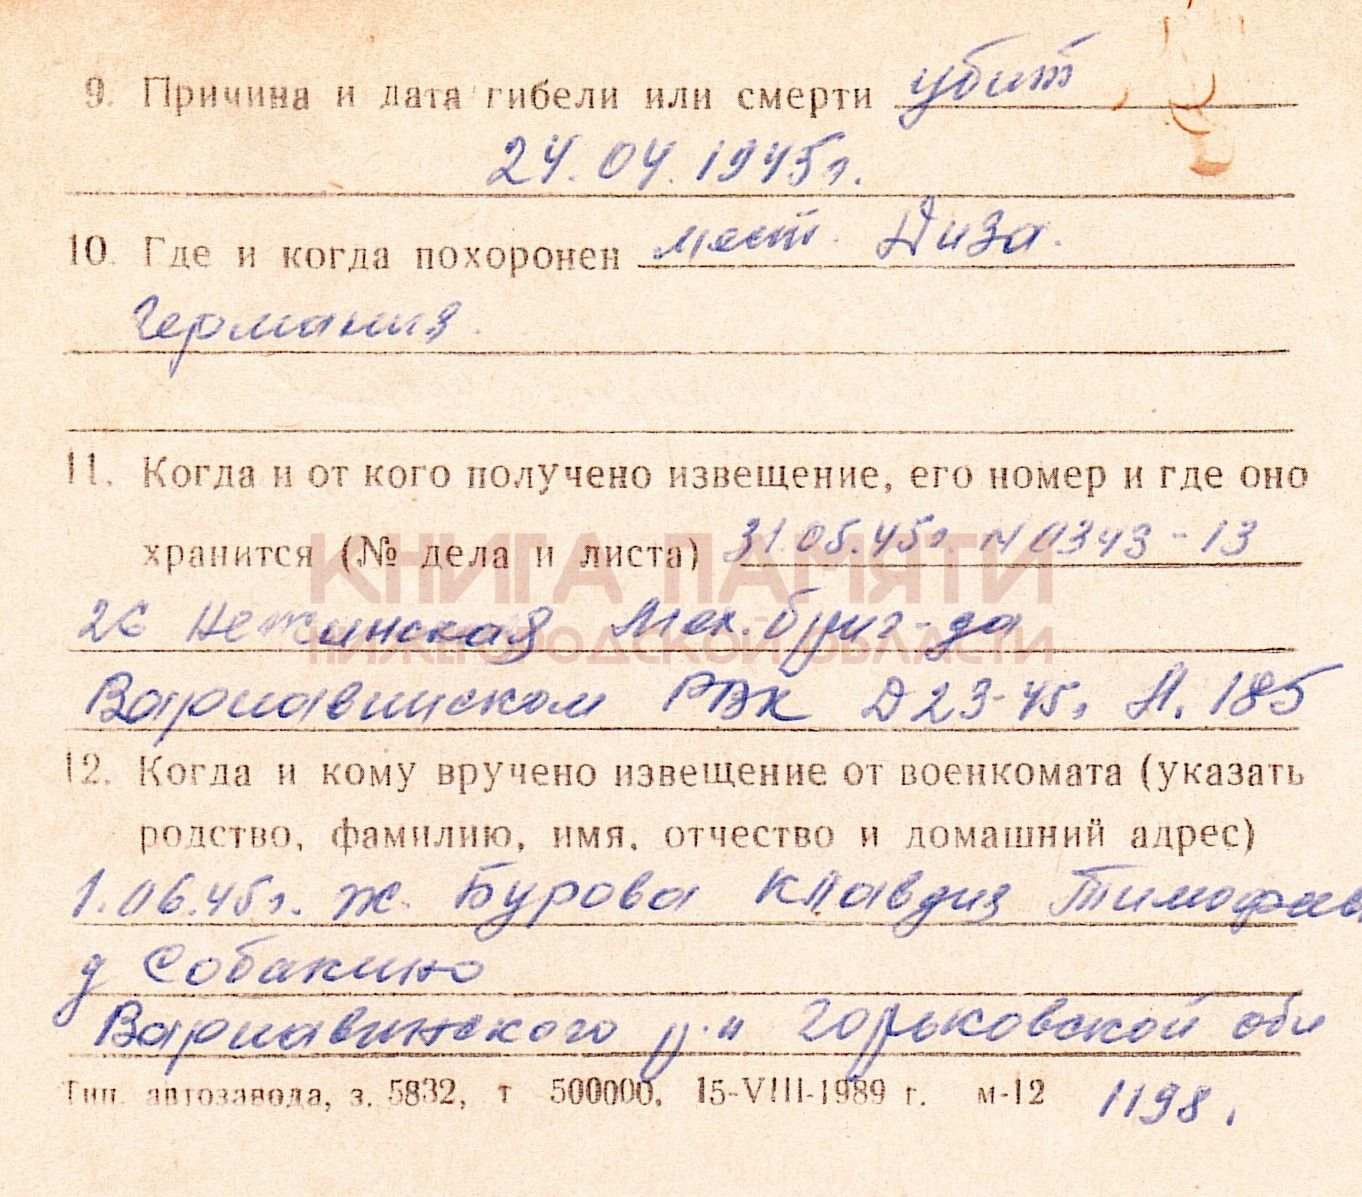 9. Причина и дата гибели или смерти убит
24.04.1945г.
10. Где и когда похоронен мест. Диза.
Германия.
11. Когда и от кого получено извещение, его номер и где оно
хранится (№ дела и листа) 31.05.45г. N 0343-13
КНИГА ПАМЯТИ
26 Нежинская Мех. бриг-да
НИЖЕГОРОДСКОЙ ОБЛАСТИ
Варнавинском РВК Д 23-45г Л. 185
12. Когда и кому вручено извещение от военкомата (указать
родство, фамилию, имя, отчество и домашний адрес)
1.06.45г. ж. Бурова Клавдия Тимофеев
д Собакино
Варнавинского р-н Горьковской обл
Тип. автозавода, з. 5832, т 500000, 15-VIII-1989 г. м-12 1198.